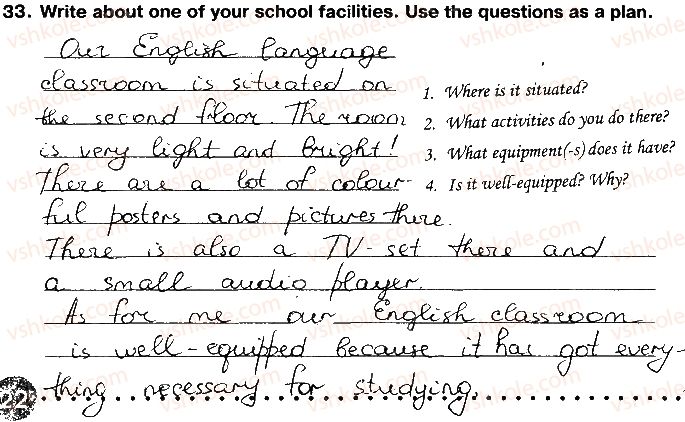 33. Write about one of your school facilities. Use the questions as a plan.
Our English language
classroom is situated on
the second floor. The room
is very light and bright!
There are a lot of colour-
ful posters and pictures there.
There is also a TV-set there and
a small audio player.
As for me our English classroom
is well-equipped because it has got every-
thing necessary for studying.
1. Where is it situated?
2. What activities do you do there?
3. What equipment(-s) does it have?
4. Is it well-equipped? Why?
22
vshkole.com